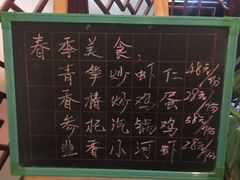 春季美食:
青笋炒虾仁 48元/份
香椿炒鸡蛋 28元/份
参杞汽锅鸡 58元/份
盐香小河虾 28元/份